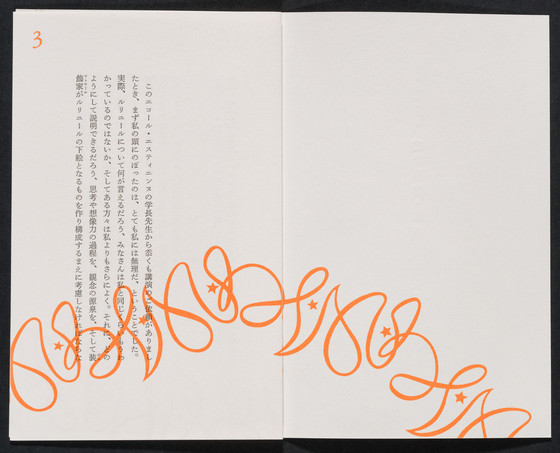 3
このエコール・エスティエンヌの学長先生から忝くも講演のご依頼がありまし
たとき、まず私の頭にのぼったのは、とても私には無理だ、ということでした。
実際、ルリユールについて何が言えるだろう、みなさんは私と同じくらいもうわ
かっているのではないか、そしてある方々は私よりもさらによく。それに、どの
ようにして説明できるだろう、思考や想像力の過程を、観念の源泉を、そして装
飾家がルリユールの下絵となるものを作り構成するまえに考慮しなければならな